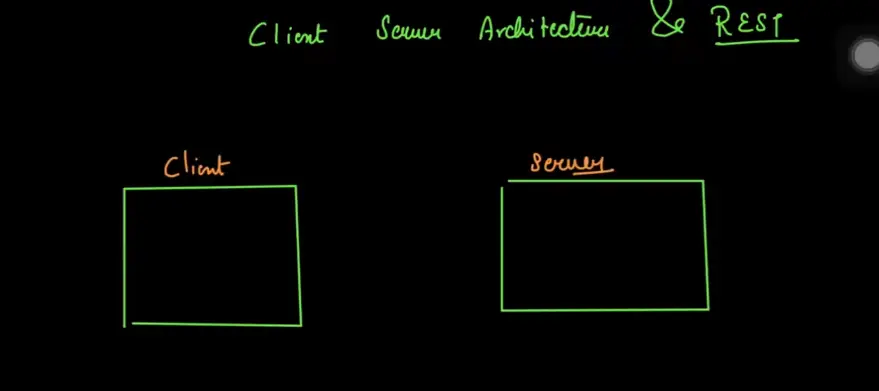 Client Server Architecture & REST
Client
Server